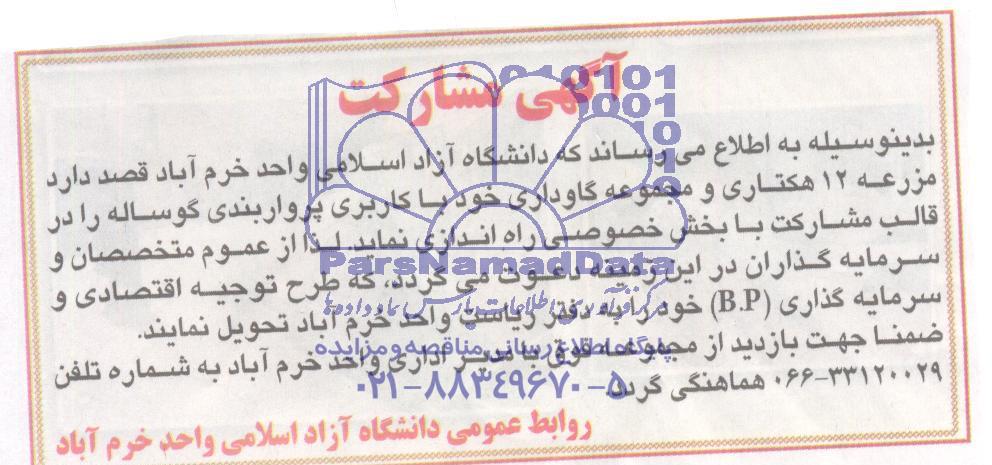 آگهی مشارکت
بدینوسیله به اطلاع می رساند که دانشگاه آزاد اسلامی واحد خرم آباد قصد دارد
مزرعه ۱۲ هکتاری و مجموعه گاوداری خود با کاربری پرواربندی گوساله را در
قالب مشارکت با بخش خصوصی راه اندازی نماید. لذا از عموم متخصصان و
سرمایه گذاران در این زمینه دعوت می گردد، که طرح توجیه اقتصادی و
سرمایه گذاری (B.P) خود را به دفتر ریاست واحد خرم آباد تحویل نمایند.
ضمنا جهت بازدید از مجموعه فوق با مدیر اداری واحد خرم آباد به شماره تلفن
۰۶۶-۳۳۱۲۰۰۲۹ هماهنگی گردد.
روابط عمومی دانشگاه آزاد اسلامی واحد خرم آباد
ParsNamadData
پایگاه اطلاع رسانی مناقصه و مزایده
۰۲۱-۸۸۳۴۹۶۷۰-۵